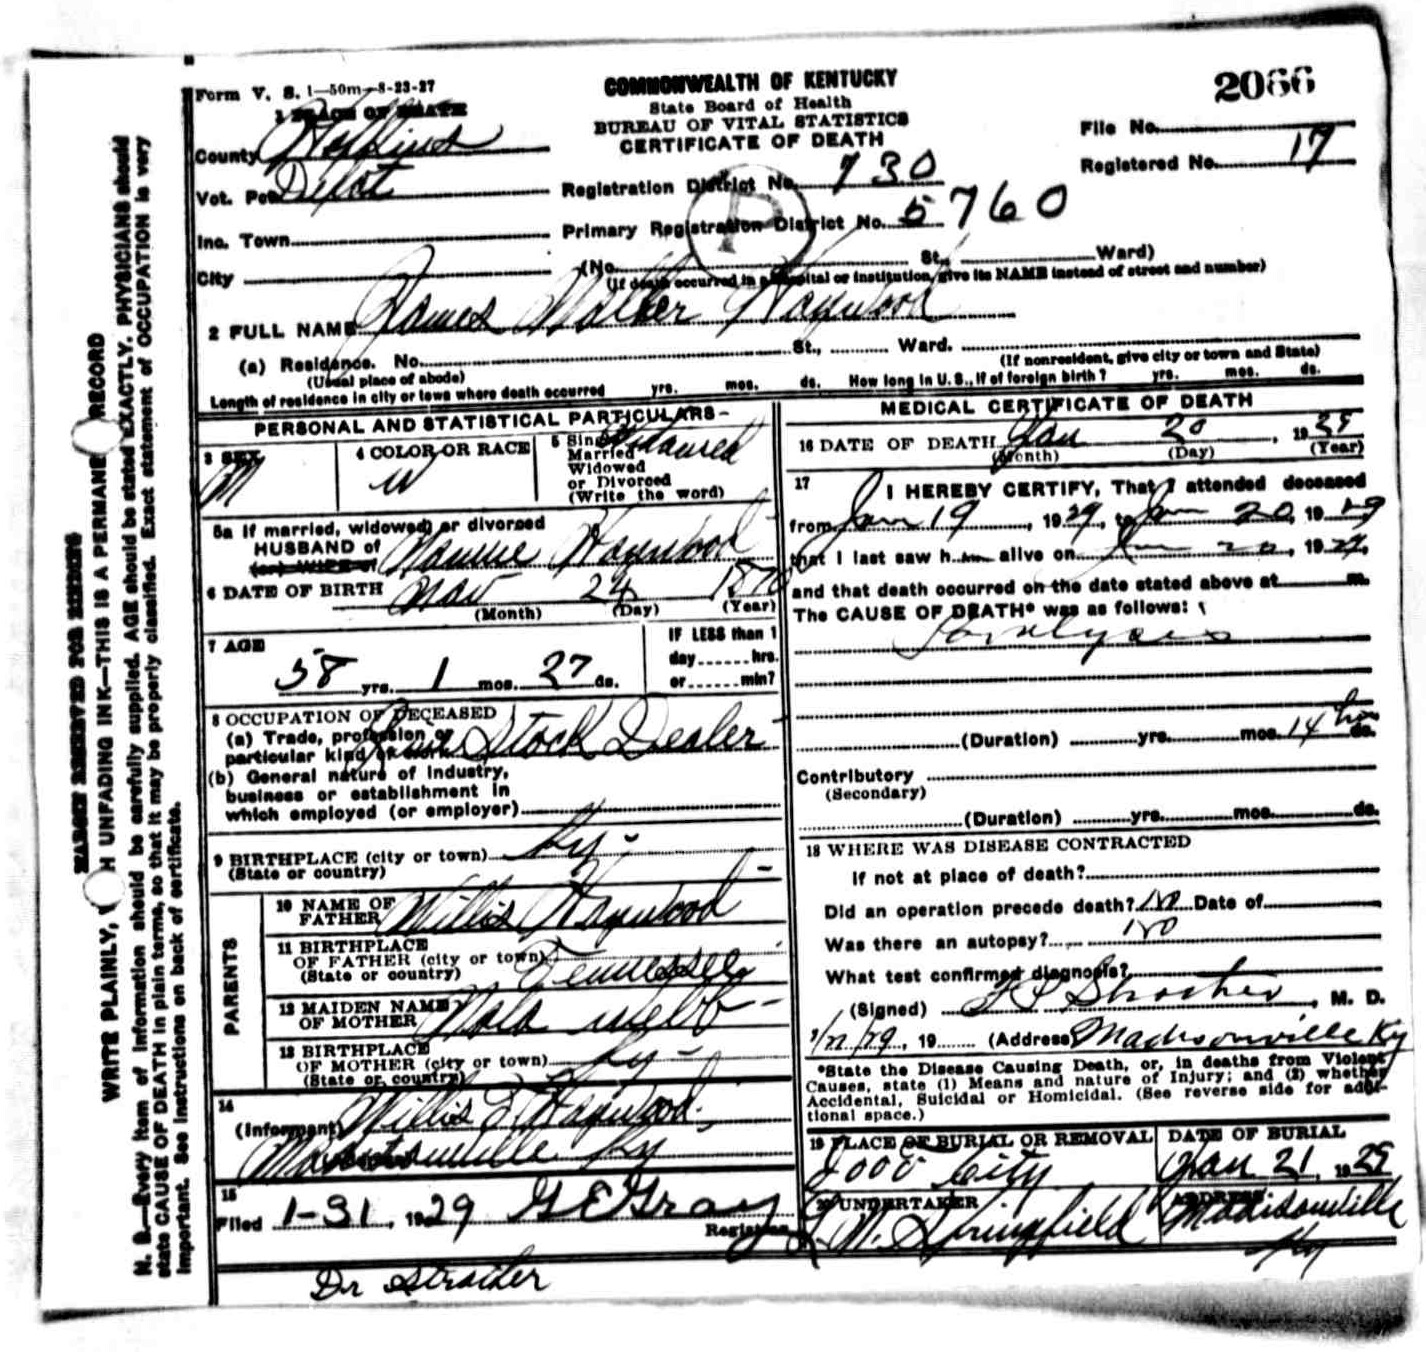 Form V. S. 1—50m—8-23-27
COMMONWEALTH OF KENTUCKY
State Board of Health
BUREAU OF VITAL STATISTICS
CERTIFICATE OF DEATH
2066
File No.
Registered No. 17
1 PLACE OF DEATH
County Hopkins
Vot. Pct Depot
Inc. Town
City
Registration District No. 730
Primary Registration District No. 5760
P
(No. St., Ward)
(If death occurred in a hospital or institution, give its NAME instead of street and number)
2 FULL NAME James Walker Haywood
(a) Residence. No. St., Ward.
(Usual place of abode)
(If nonresident, give city or town and State)
Length of residence in city or town where death occurred yrs. mos. ds. How long in U. S., if of foreign birth? yrs. mos. ds.
PERSONAL AND STATISTICAL PARTICULARS
3 SEX
M
4 COLOR OR RACE
W
5 Single
Married
Widowed
or Divorced
(Write the word)
Widowed
5a If married, widowed, or divorced
HUSBAND of
(or) WIFE of
Nannie Haywood
6 DATE OF BIRTH Nov 24 1870
(Month) (Day) (Year)
7 AGE
58 yrs. 1 mos. 27 ds.
IF LESS than 1
day hrs.
or min?
8 OCCUPATION OF DECEASED
(a) Trade, profession or
particular kind of work
Live Stock Dealer
(b) General nature of industry,
business or establishment in
which employed (or employer)
9 BIRTHPLACE (city or town) Ky-
(State or country)
PARENTS
10 NAME OF
FATHER Willis Haywood
11 BIRTHPLACE
OF FATHER (city or town)
(State or country) Tennessee
12 MAIDEN NAME
OF MOTHER Webb
13 BIRTHPLACE
OF MOTHER (city or town) Ky-
(State or country)
14
(Informant) Willis Haywood
Madisonville Ky
15
Filed 1-31, 1929 G E Gray
Registrar
Dr Strother
MEDICAL CERTIFICATE OF DEATH
16 DATE OF DEATH Jan 20, 1929
(Month) (Day) (Year)
17
I HEREBY CERTIFY, That I attended deceased
from Jan 19, 1929, to Jan 20, 1929
that I last saw him alive on Jan 20, 1929,
and that death occurred on the date stated above at m.
The CAUSE OF DEATH* was as follows:
Paralysis
(Duration) yrs. mos. 14 hrs ds.
Contributory
(Secondary)
(Duration) yrs. mos. ds.
18 WHERE WAS DISEASE CONTRACTED
If not at place of death?
Did an operation precede death? no Date of
Was there an autopsy? no
What test confirmed diagnosis?
(Signed) Strother, M. D.
19 (Address) Madisonville Ky
*State the Disease Causing Death, or, in deaths from Violent
Causes, state (1) Means and nature of Injury; and (2) whether
Accidental, Suicidal or Homicidal. (See reverse side for addi-
tional space.)
19 PLACE OF BURIAL OR REMOVAL
City
DATE OF BURIAL
Jan 21, 1929
20 UNDERTAKER
Springfield
ADDRESS
Madisonville
Ky
MARGIN RESERVED FOR BINDING
WRITE PLAINLY, WITH UNFADING INK—THIS IS A PERMANENT RECORD
N. B.—Every item of information should be carefully supplied. AGE should be stated EXACTLY. PHYSICIANS should
state CAUSE OF DEATH in plain terms, so that it may be properly classified. Exact statement of OCCUPATION is very
important. See instructions on back of certificate.